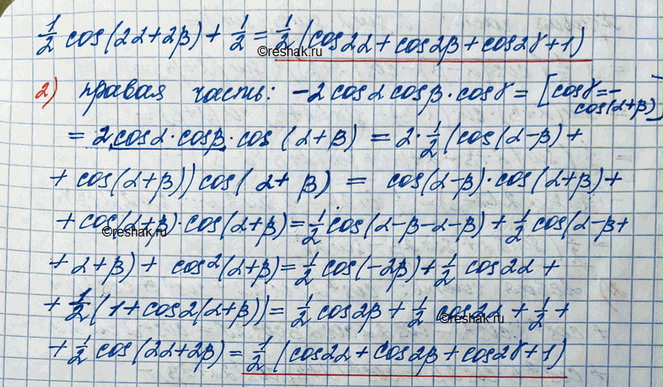 1/2 cos(2α+2β) + 1/2 = 1/2 (cos2α + cos2β + cos2γ + 1)
2) правая часть: -2 cosα cosβ · cosγ = [cosγ = - cos(α+β)]
= 2 cosα · cosβ · cos (α + β) = 2 · 1/2 (cos(α-β) +
+ cos(α+β)) cos(α + β) = cos(α-β) · cos(α+β) +
+ cos(α+β) · cos(α+β) = 1/2 cos(α-β-α-β) + 1/2 cos(α-β+
reshak.ru
+ α+β) + cos²(α+β) = 1/2 cos(-2β) + 1/2 cos2α +
+ 1/2 (1 + cos2(α+β)) = 1/2 cos2β + 1/2 cos2α + 1/2 +
reshak.ru
+ 1/2 cos(2α+2β) = 1/2 (cos2α + cos2β + cos2γ + 1)